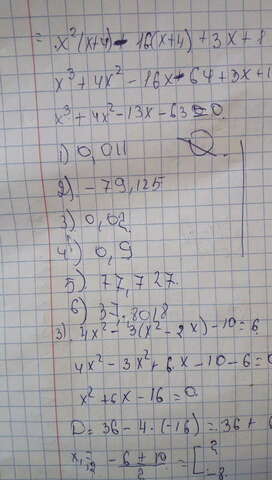 = x²(x+4) - 16(x+4) + 3x + 1
x³ + 4x² - 16x - 64 + 3x + 1
x³ + 4x² - 13x - 63 = 0
1) 0,011
2) - 79,125
3) 0,02
4) 0,9
5) 77,727
6) 37,8018
3). 4x² - 3(x² - 2x) - 10 = 6
4x² - 3x² + 6x - 10 - 6 = 0
x² + 6x - 16 = 0
D = 36 - 4·(-16) = 36 + 6
x₁,₂ = -6 ± 10 / 2 = [ 2 -8